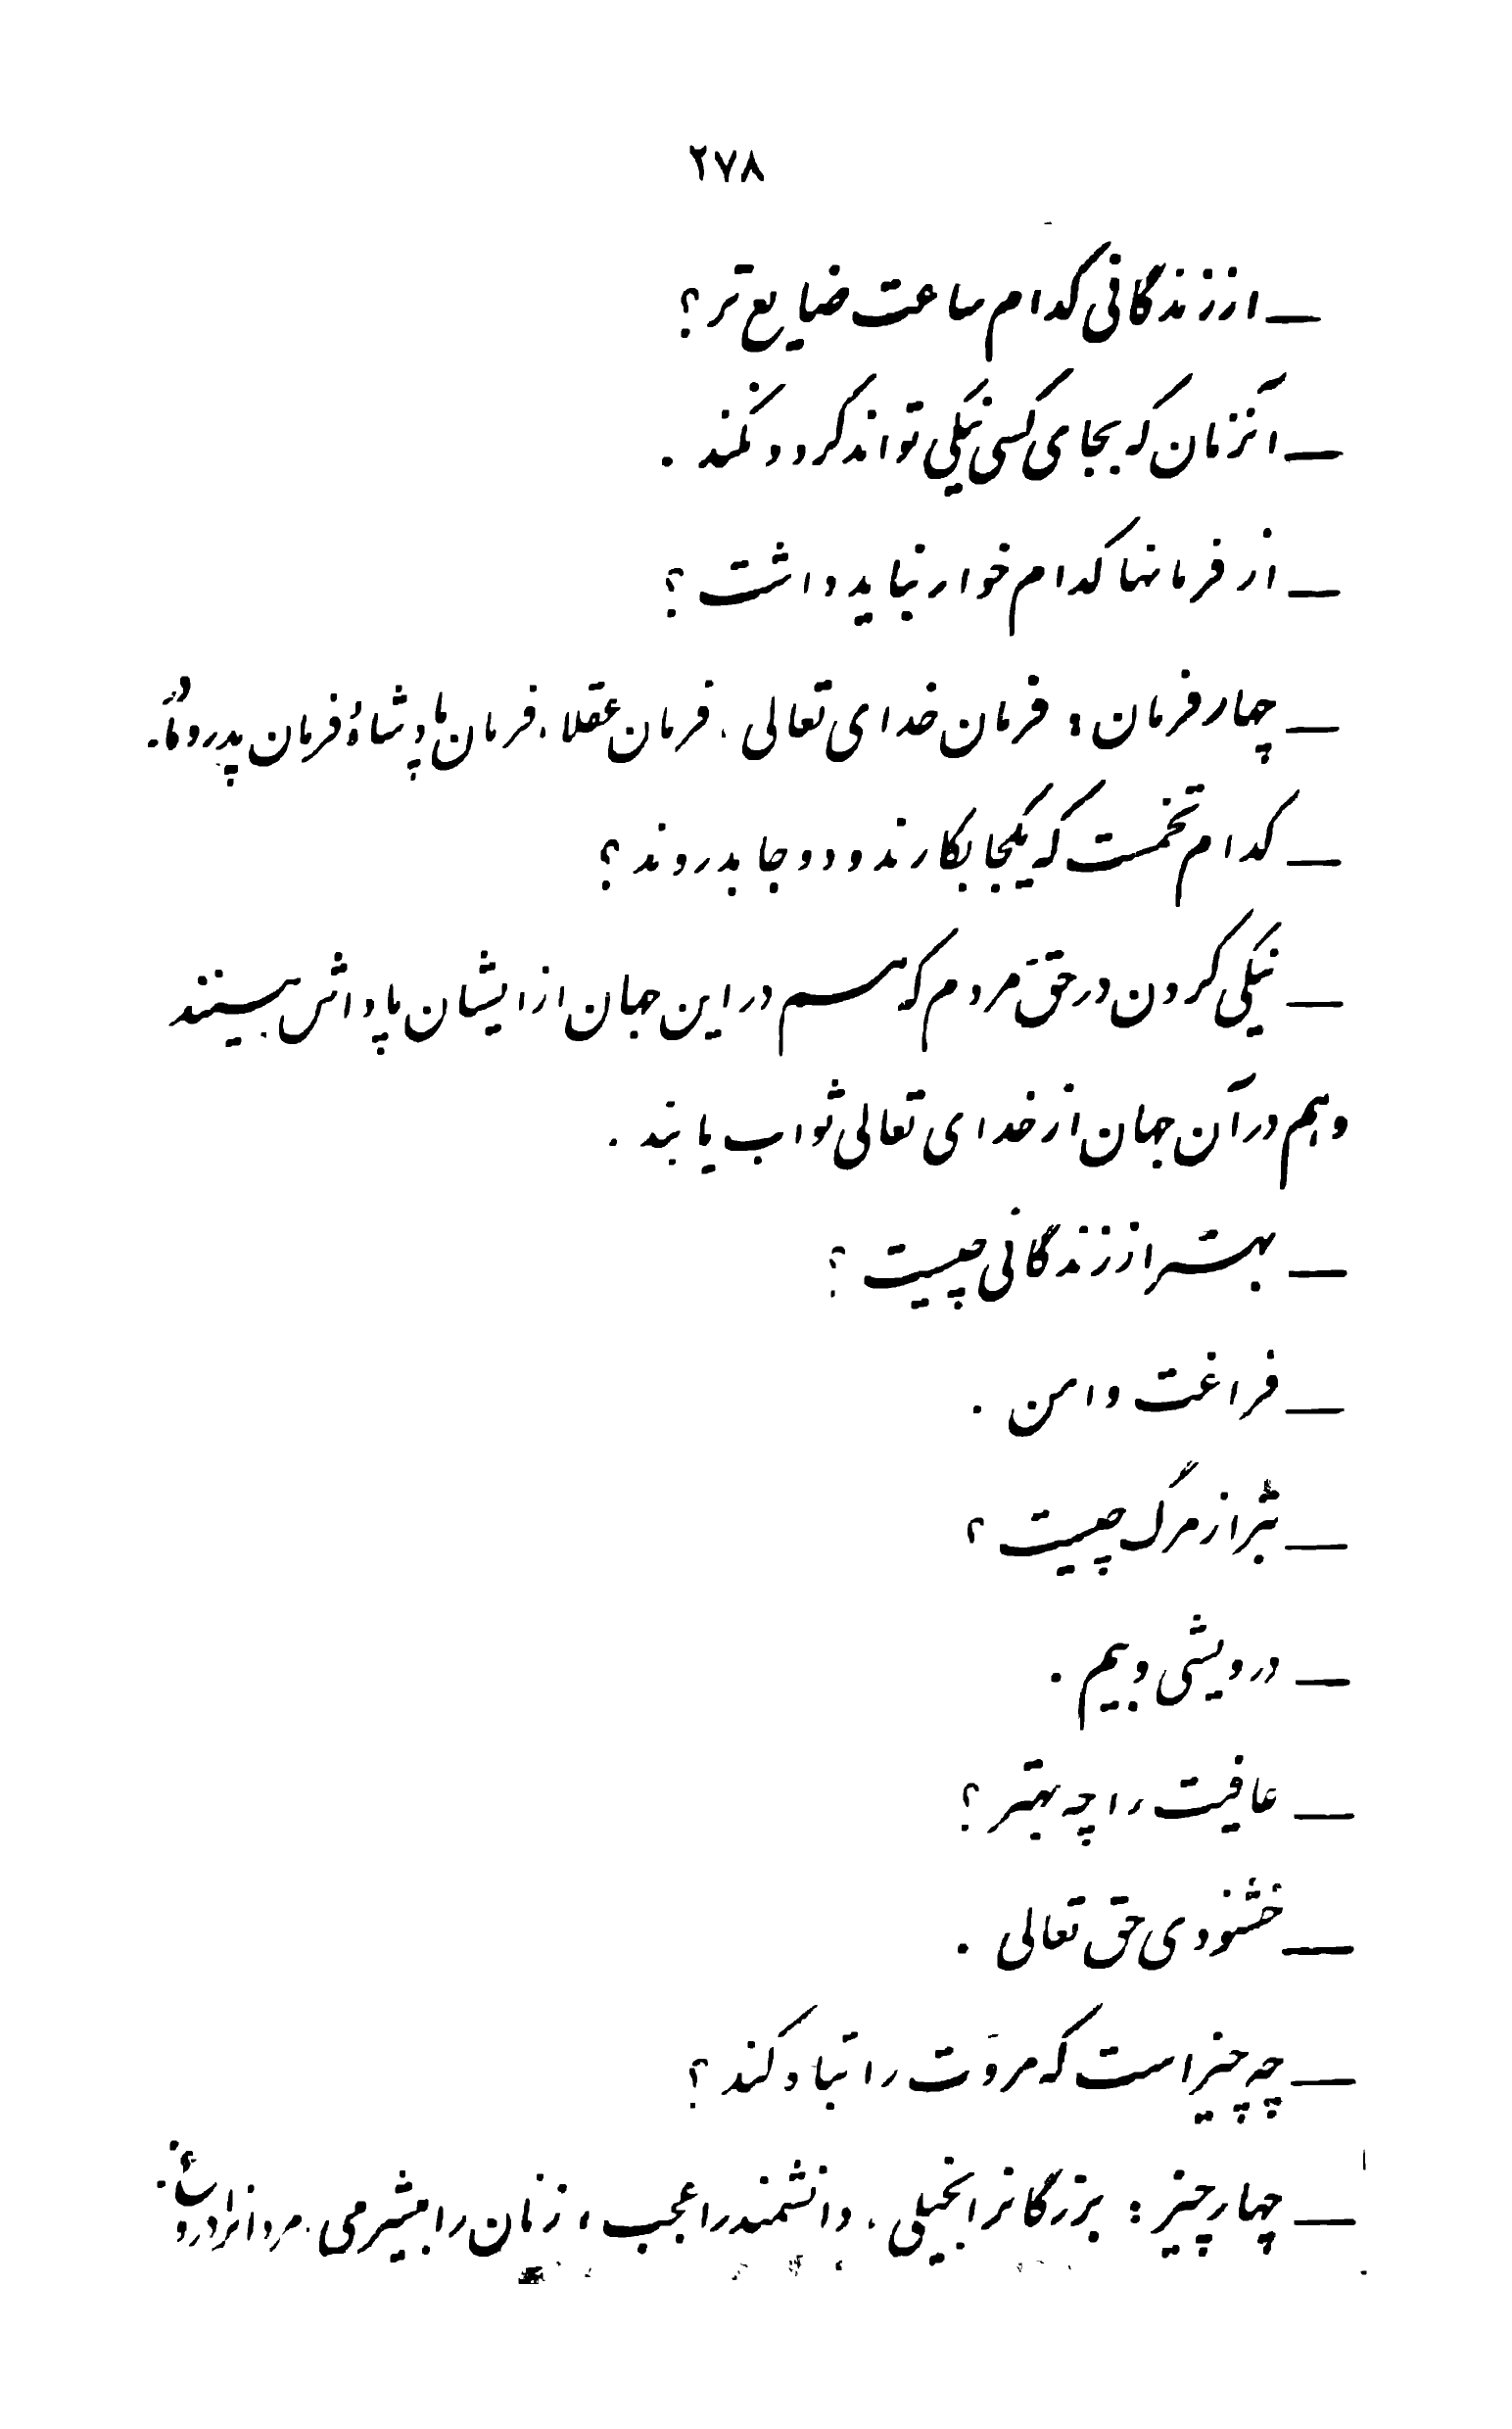 ۲۷۸
ــ از زندگانی کدام ساعت ضایع تر؟
ــ آنزمان که بجای کسی نیکی تواند کرد و نکند .
ــ از فرمانها کدام خوار نباید داشت؟
ــ چهار فرمان : فرمان خدای تعالی ، فرمان عقلا ، فرمان پادشاه ، فرمان پدر و مادر .
ــ کدام تخمست که یکجا بکارند و دو جا بدروند ؟
ــ نیکی کردن در حق مردم که هم در این جهان از ایشان پاداش بینند
و هم در آن جهان از خدای تعالی ثواب یابند .
ــ بهتر از زندگانی چیست ؟
ــ فراغت و امن .
ــ بتر از مرگ چیست ؟
ــ درویشی و بیم .
ــ عاقبت را چه بهتر ؟
ــ خشنودی حق تعالی .
ــ چه چیز است که مروّت را تباه کند ؟
ــ چهار چیز : بزرگانرا بخیلی ، دانشمند را عجب ، زنان را بیشرمی ، مردانرا دروغ .